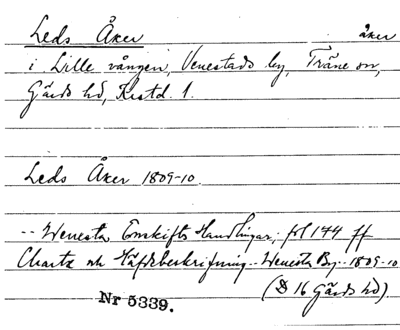 Leds Åker åker
i Lille vången, Venestads by, Träne sn,
Gärds hd, Krstd. l.
Leds Åker 1809-10
-- Wenesta Enskifts Handlingar, fol 144 ff
Charta och Häfdebeskrifning -- Wenesta By - 1809-10
(D 16 Gärds hd).
Nr 5339.